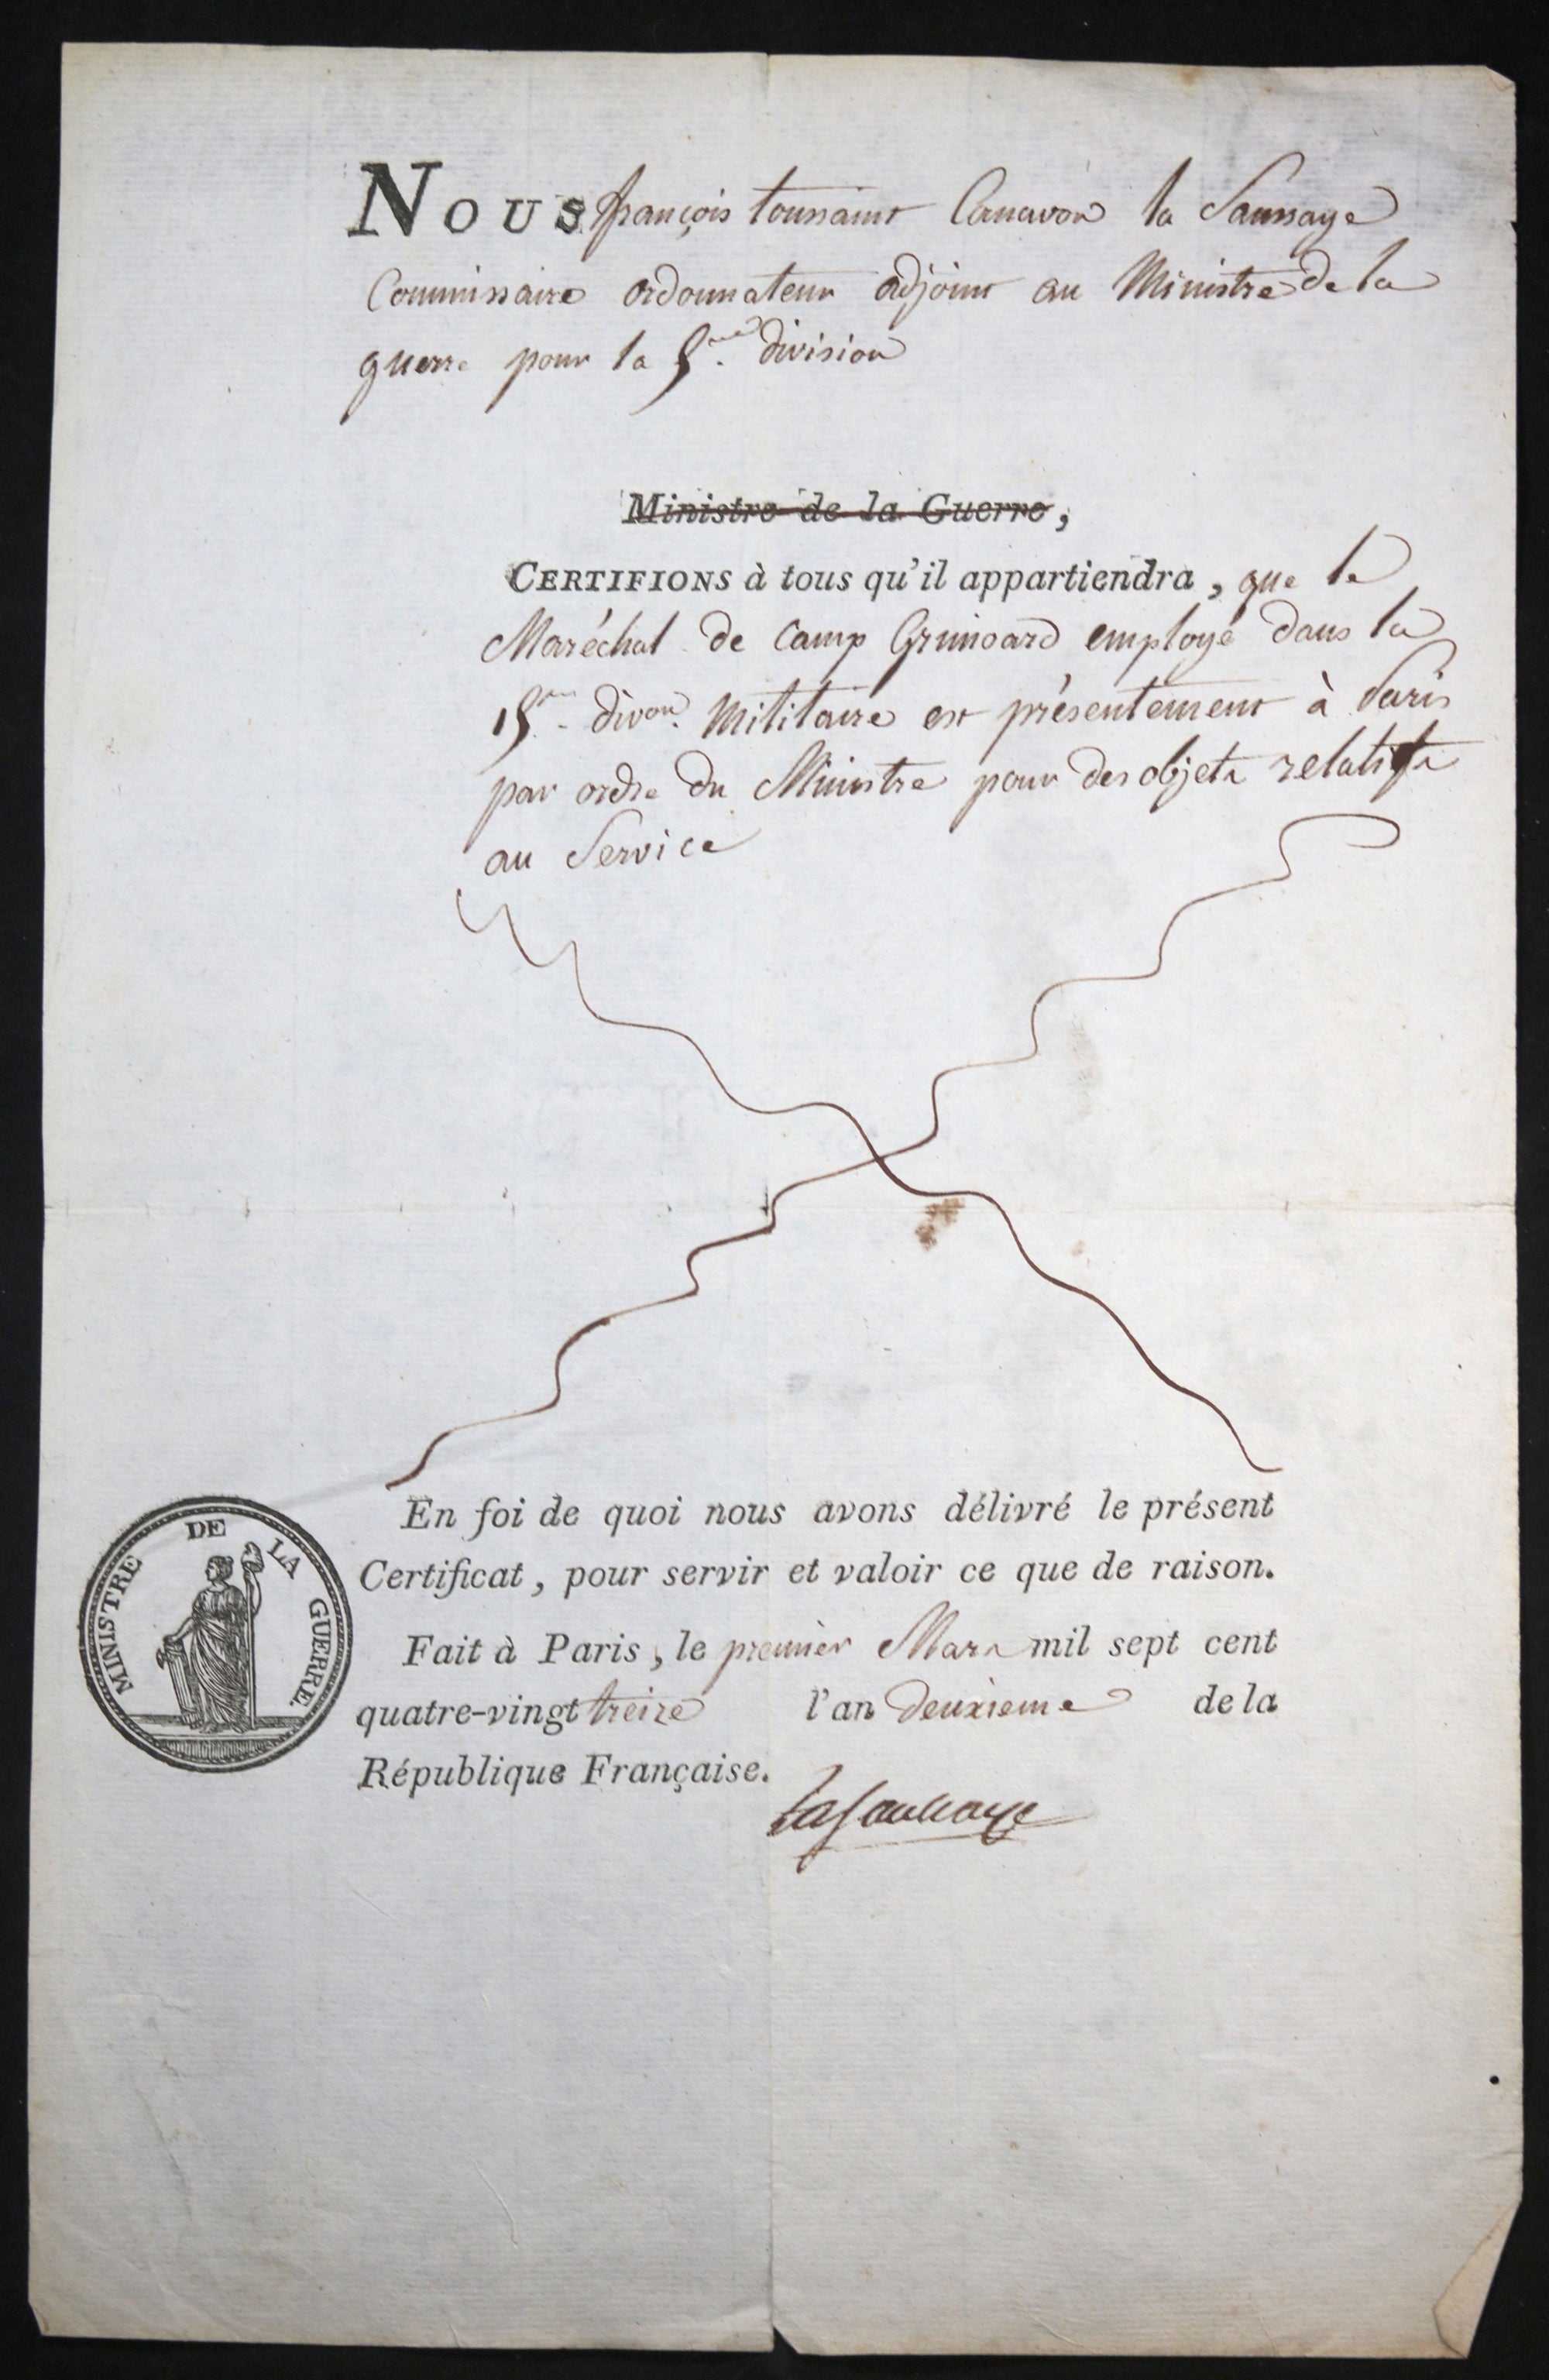 NOUS françois toussaint la Saussaye
Commissaire ordonnateur adjoint au Ministre de la
guerre pour la 5.me division
Ministre de la Guerre,
CERTIFIONS à tous qu'il appartiendra, que le
Maréchal de Camp Grimoard employé dans la
15.me divon. Militaire est présentement à Paris
par ordre du Ministre pour des objets relatifs
au Service
MINISTRE DE LA GUERRE.
En foi de quoi nous avons délivré le présent
Certificat, pour servir et valoir ce que de raison.
Fait à Paris, le premier Mars mil sept cent
quatre-vingt treize l'an deuxieme de la
République Française.
la Saussaye